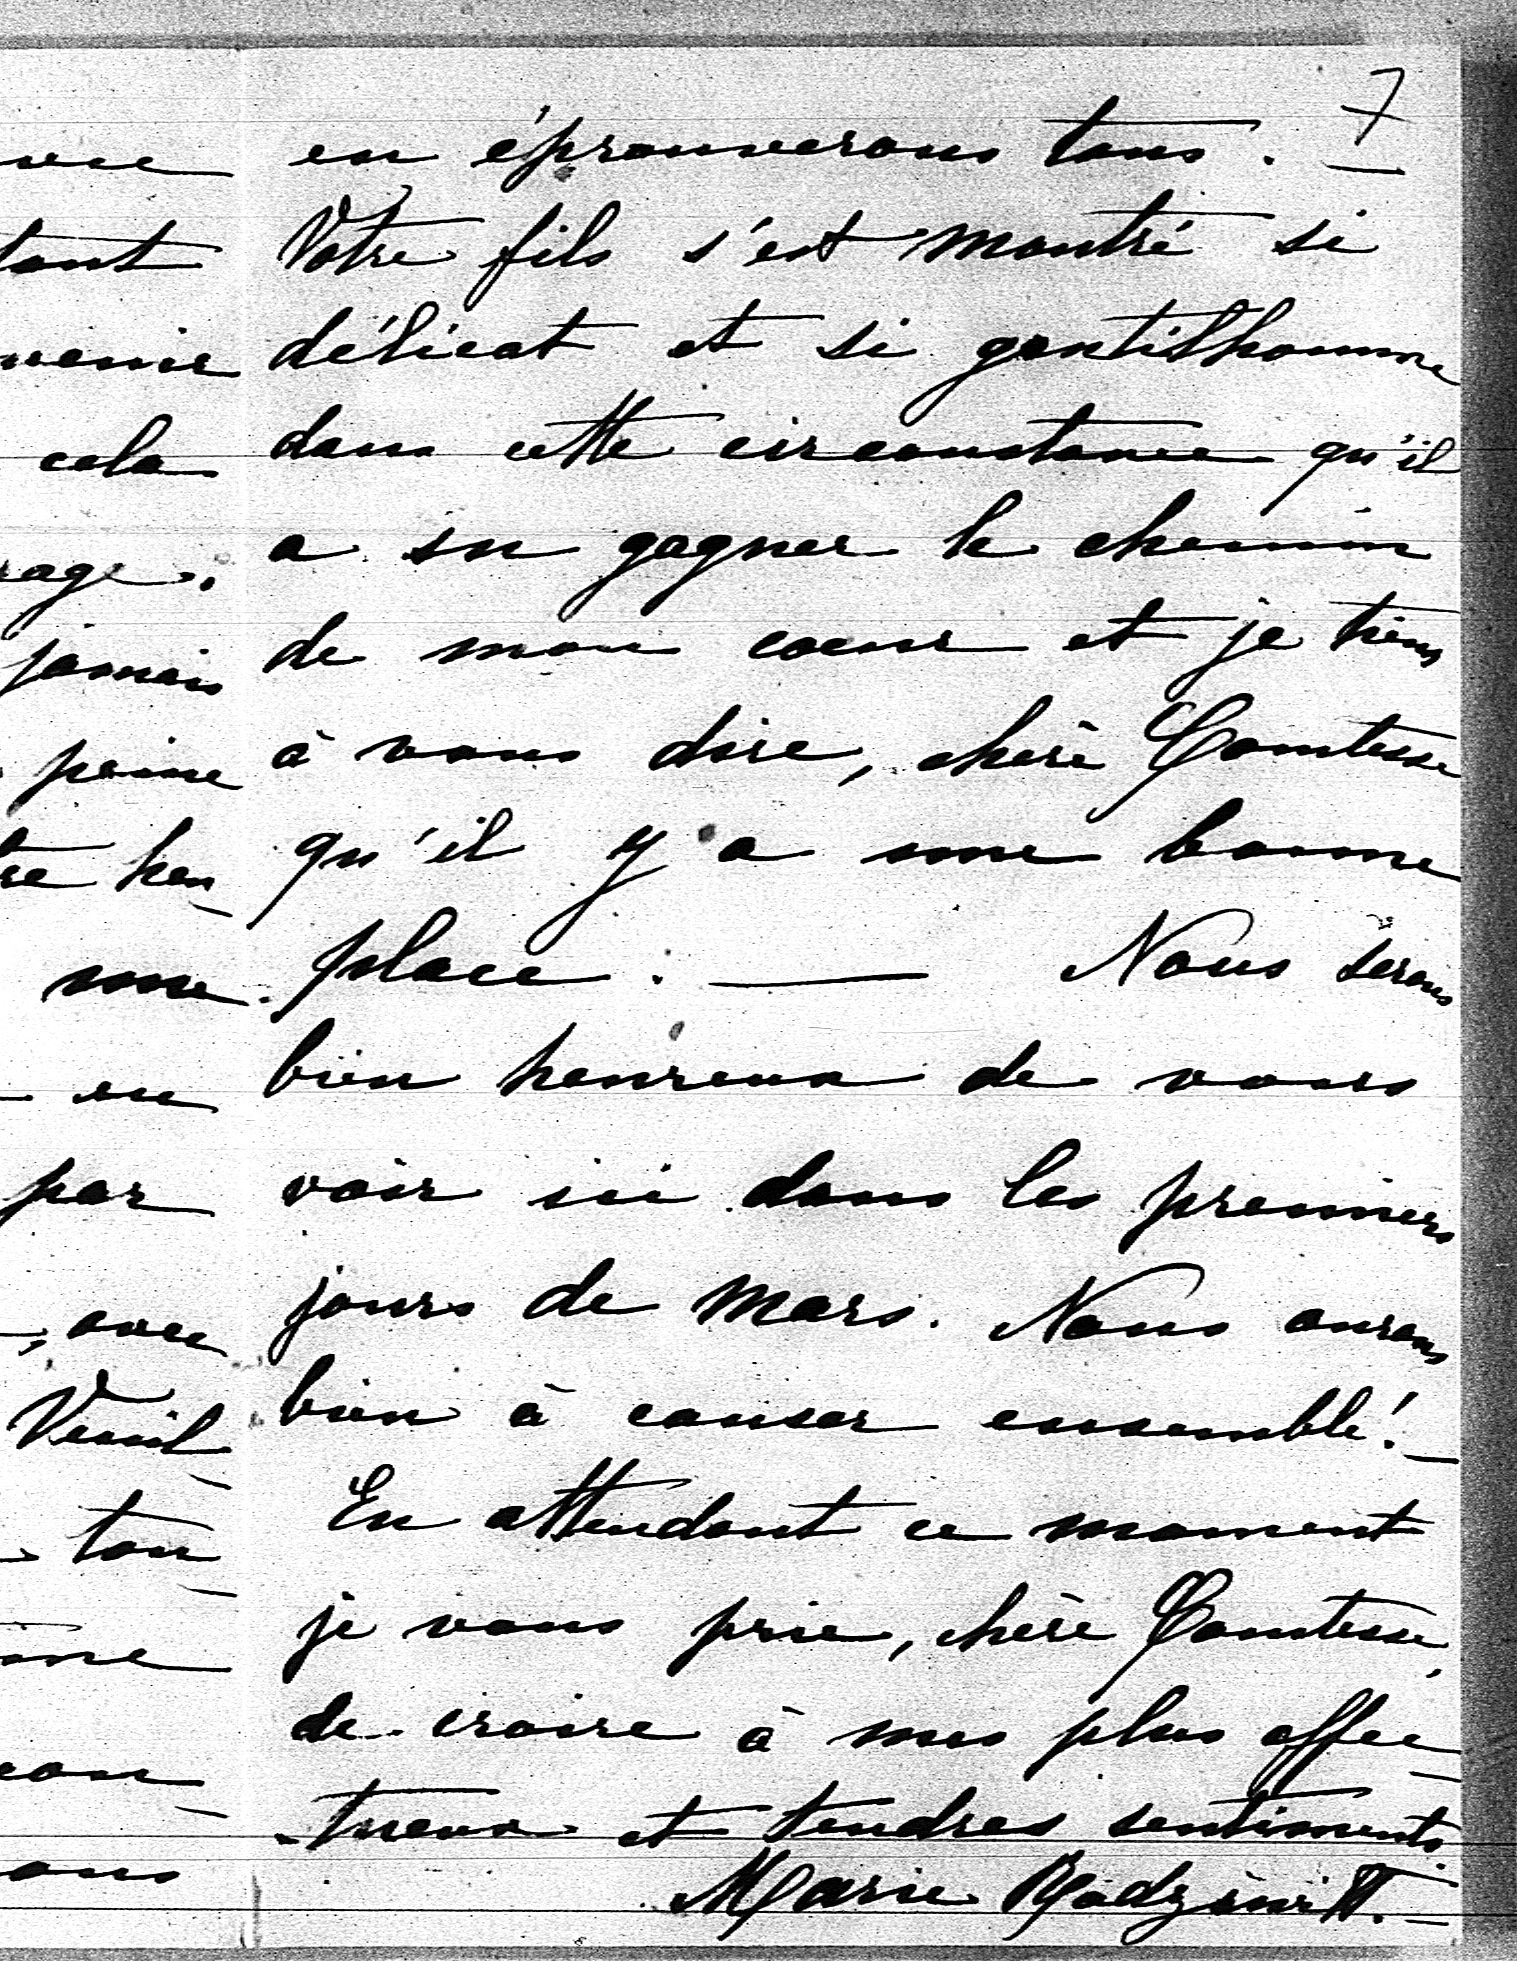 7
en éprouverons tous.
Votre fils s'est montré si
délicat et si gentilhomme
dans cette circonstance qu'il
a su gagner le chemin
de mon coeur et je tiens
à vous dire, chère Comtesse
qu'il y a une bonne
place. — Nous serons
bien heureux de vous
voir ici dans les premiers
jours de Mars. Nous aurons
bien à causer ensemble! —
En attendant ce moment
je vous prie, chère Comtesse,
de croire à mes plus affec-
-tueux et tendres sentiments.
Marie Radziwiłł. —
tant
venir
cela
rage.
jamais
peine
tre heu-
une
en
par
, avec
Veuil-
ton-